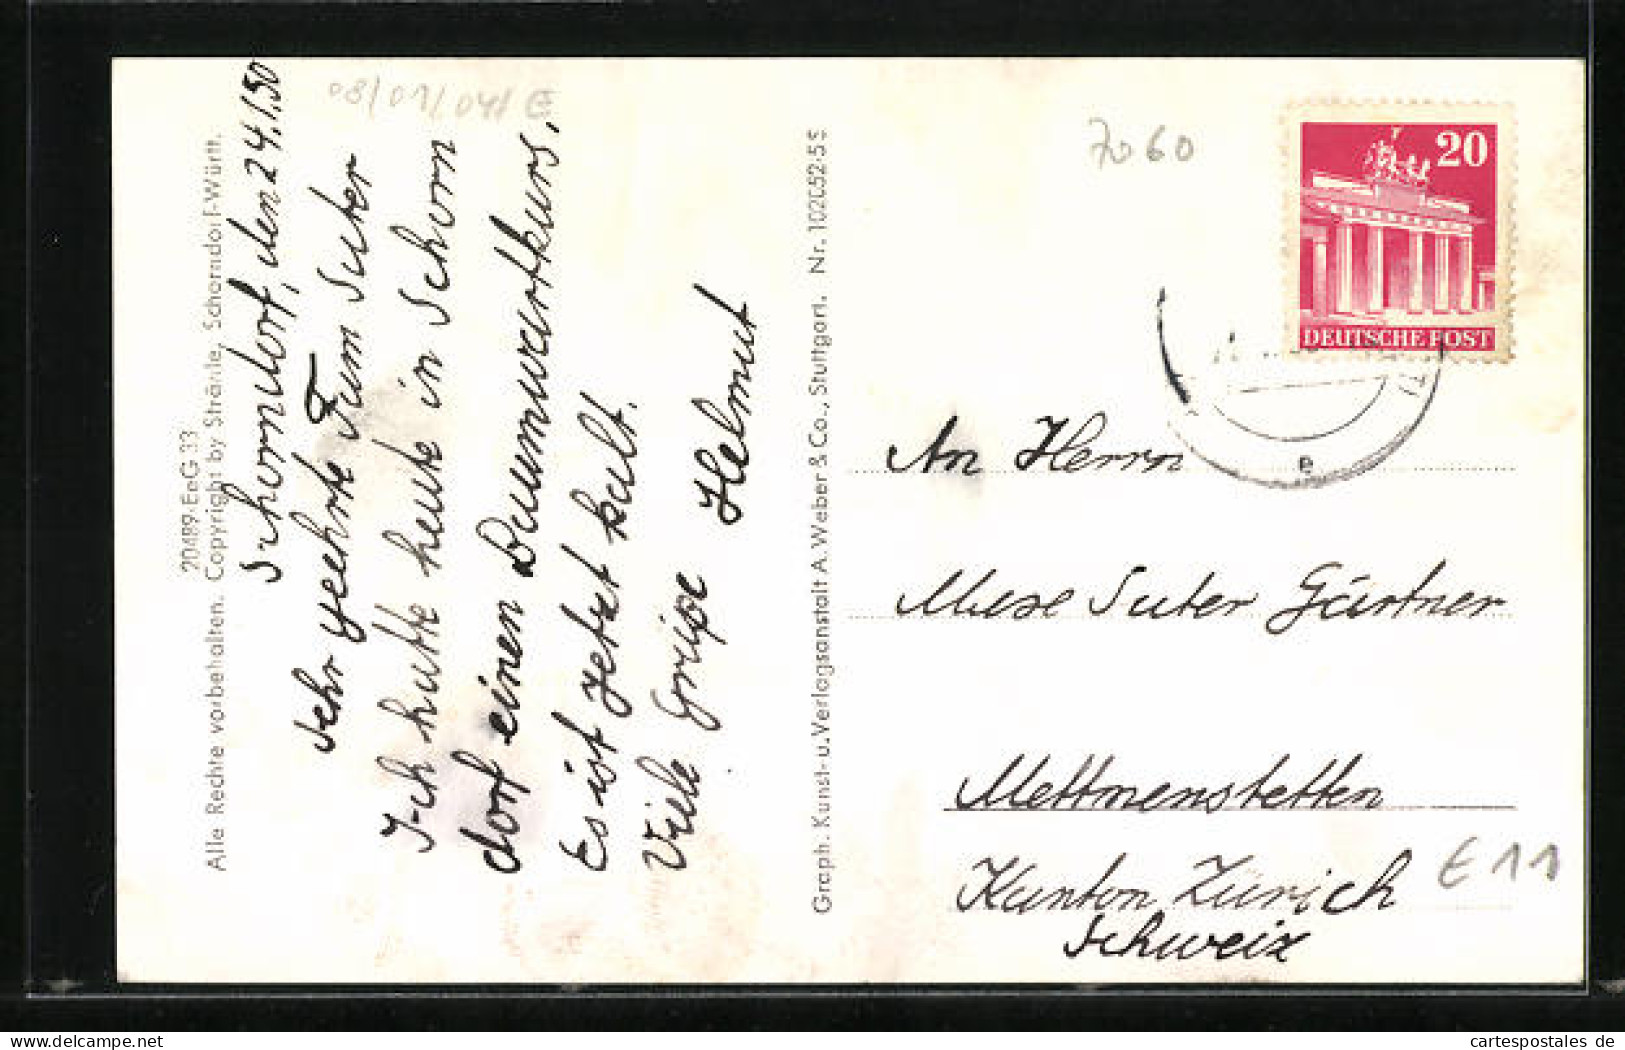 08/01/04/ E
Schorndorf, den 24.1.50
Sehr geehrte Fam Suter
Ich hatte heute in Schorn
dorf einen Baumwartkurs.
Es ist jetzt kalt.
Viele Grüße Helmut
20489 EeG 33
Alle Rechte vorbehalten. Copyright by Strähle, Schorndorf-Württ.
Graph. Kunst- u. Verlagsanstalt A. Weber & Co., Stuttgart. Nr. 102052-5S
7060
20
DEUTSCHE POST
e
An Herrn
Max Suter Gärtner
Mettmenstetten
Kanton Zürich
Schweiz
E 11
cartespostales de